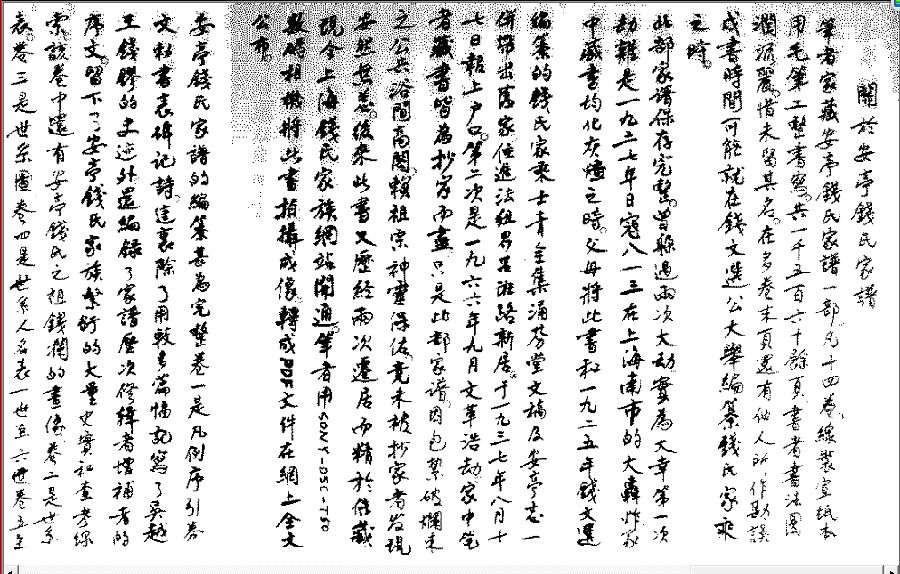 關於安亭錢氏家譜
筆者家藏安亭錢氏家譜一部凡十四卷,線裝宣紙本
用毛筆工整書寫。共一千五百六十餘頁書者書法圓
潤流麗。惜未留其名。在多卷末頁還有他人所作勘誤
成書時間可能就在錢文選公大舉編纂錢氏家乘
之時。
此部家譜保存完整。曾躲過兩次大劫實為大幸第一次
劫難是一九三七年日寇八一三在上海南市的大轟炸家
中藏書均化灰燼之時。父母將此書和一九二五年錢文選
編纂的錢氏家乘士青全集涌芬堂文稿及安亭志一
併帶出舊家住進法租界呂班路新居。于一九三七年八月十
七日報上戶口。第二次是一九六六年九月文革浩劫家中笔
者藏書皆為抄家而盡。只是此部家譜因包紮破爛未
之公共浴間高閣賴祖宗神靈保佑竟未被抄家者發現
安然無恙。後來此書又歷經兩次遷居而精於保藏
現今上海錢氏家族網站開通。筆者用SONY-DSC-T50
數碼相機將此書拍攝成像轉成PDF文件在網上全文
公布。
安亭錢氏家譜的編纂甚為完整卷一是凡例序引卷
文秘書表碑記詩這裏除了用較多篇幅記寫了吳越
王錢鏐的史迹外還編錄了家譜歷次修緝者增補者的
序文。留下了安亭錢氏家族繁衍的大量史實和查考線
索該卷中還有安亭錢氏之祖錢瀾的畫像卷二是世系
表。卷三是世系圖卷四是世系人名表一世至六世卷五至